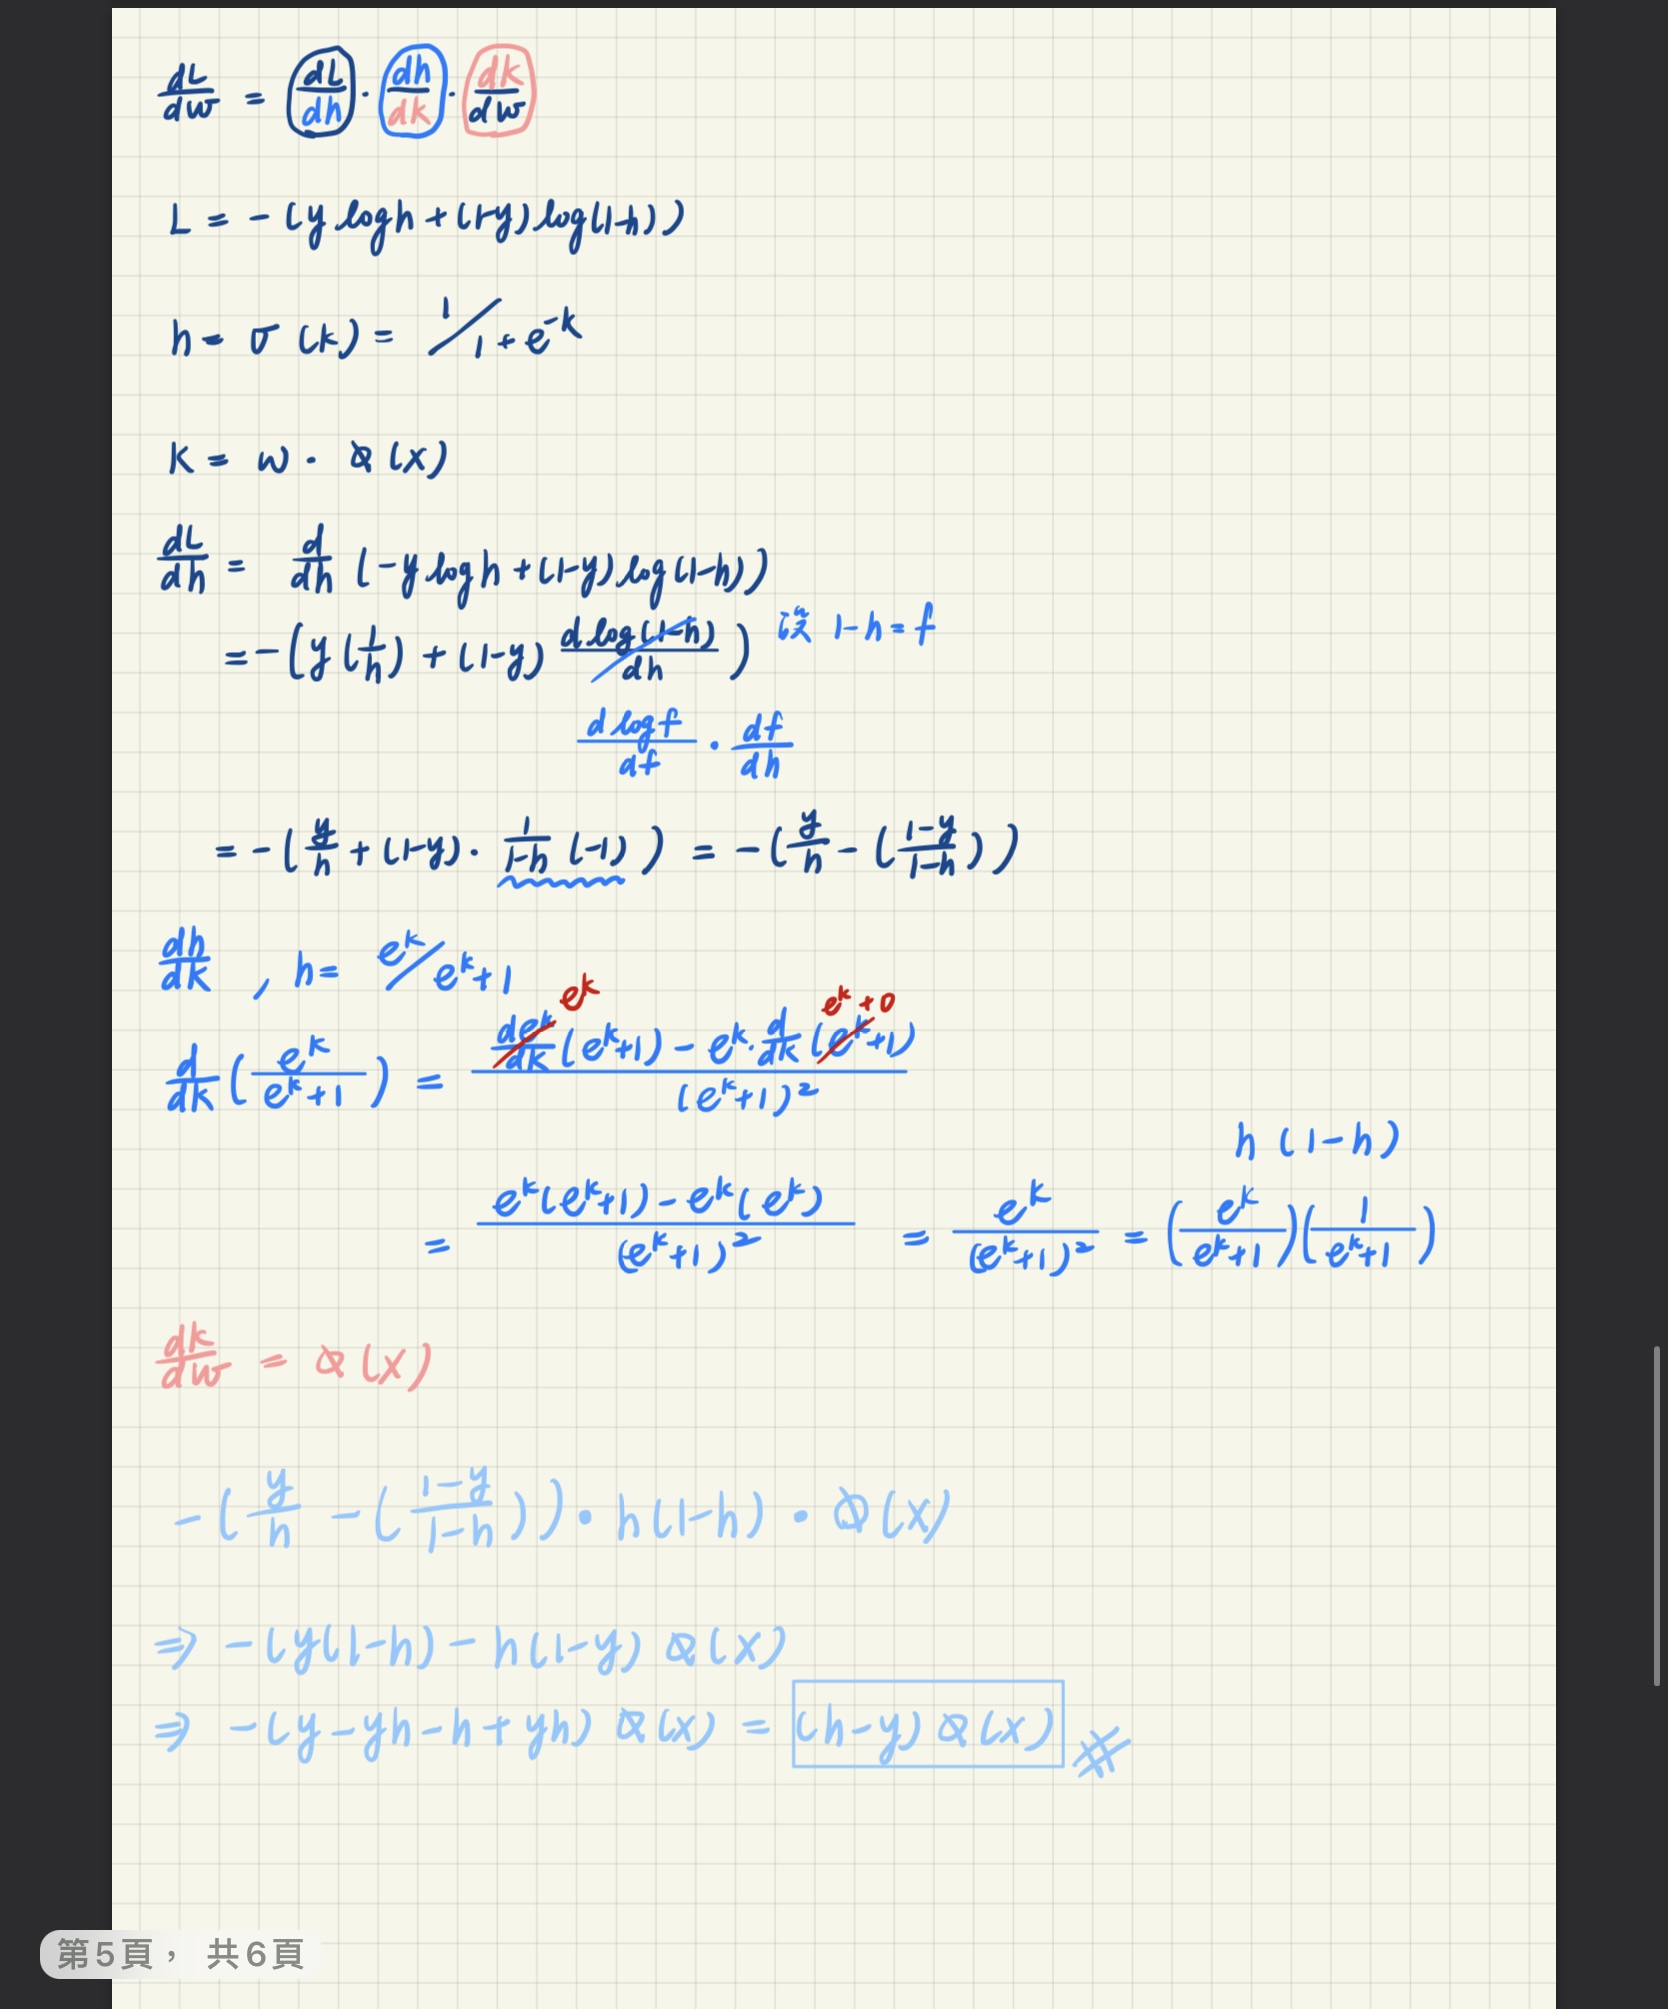 dL/dw = dL/dh · dh/dk · dk/dw
L = -(y log h + (1-y) log(1-h))
h = σ(k) = 1/1+e^-k
k = w · φ(x)
dL/dh = d/dh (-y log h + (1-y) log(1-h))
= -(y(1/h) + (1-y) d log(1-h)/dh) 設 1-h = f
d log f/df · df/dh
= -(y/h + (1-y) · 1/1-h (-1)) = -(y/h - (1-y/1-h))
dh/dk , h = e^k/e^k+1
e^k e^k+0
d/dk (e^k/e^k+1) = de^k/dk (e^k+1) - e^k · d/dk (e^k+1) / (e^k+1)^2
h(1-h)
= e^k(e^k+1) - e^k(e^k) / (e^k+1)^2 = e^k/(e^k+1)^2 = (e^k/e^k+1)(1/e^k+1)
dk/dw = φ(x)
-(y/h - (1-y/1-h)) · h(1-h) · φ(x)
⇒ -(y(1-h) - h(1-y) φ(x)
⇒ -(y - yh - h + yh) φ(x) = (h-y) φ(x) #
第5頁， 共6頁